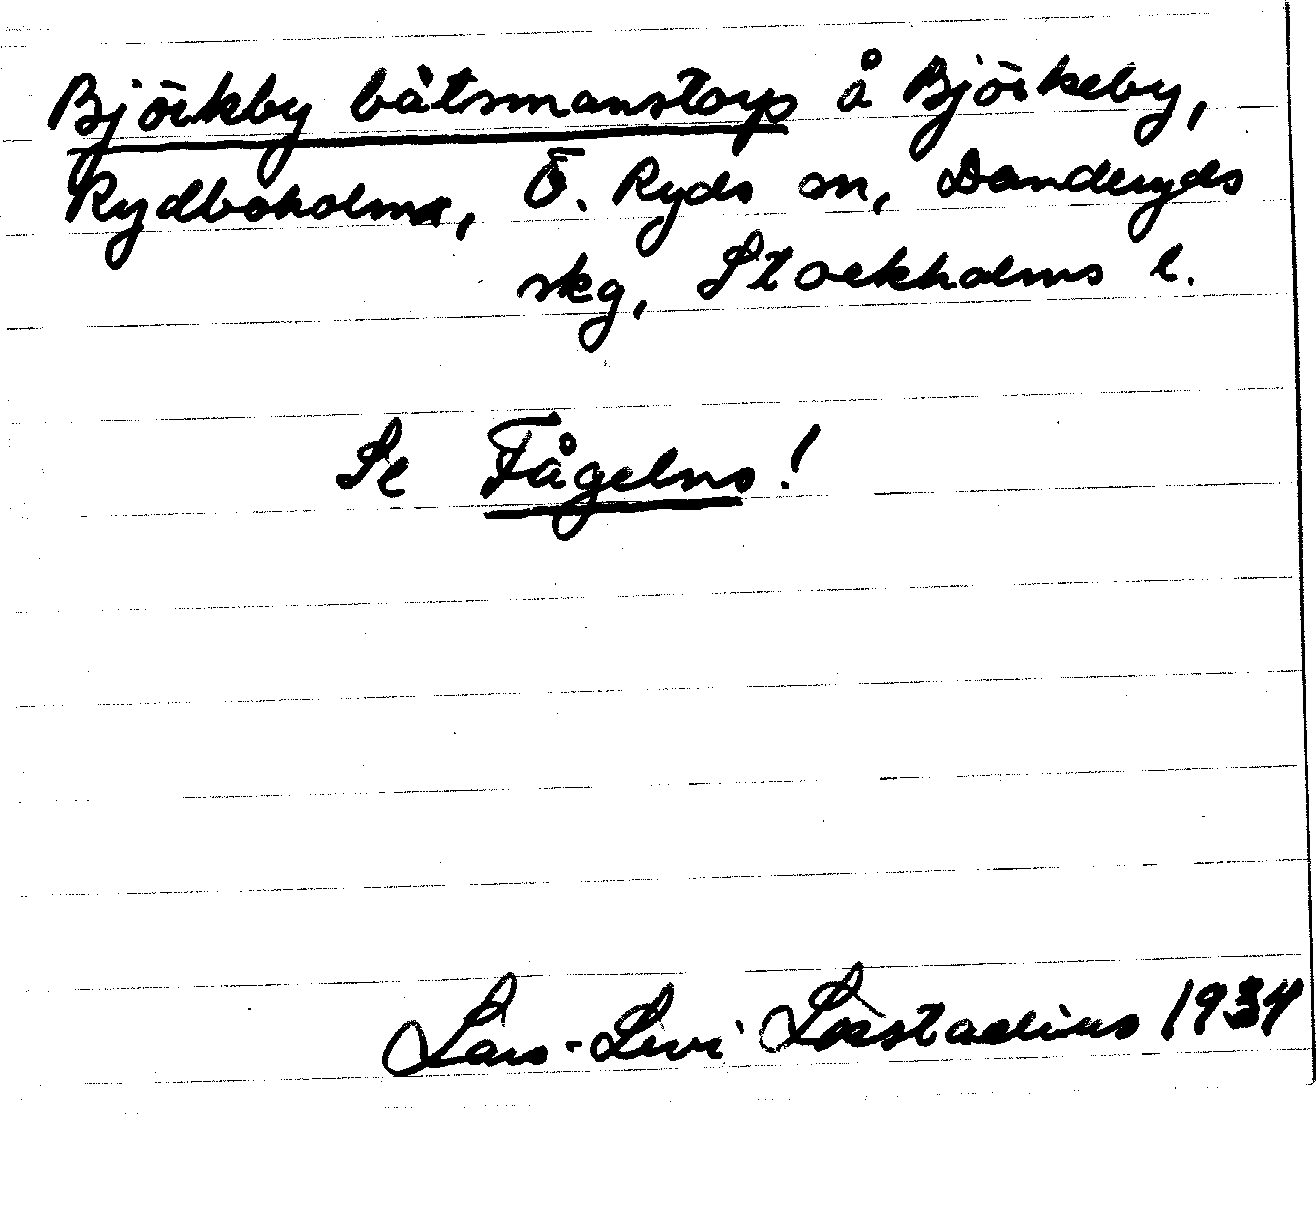 Björkby båtsmanstorp å Björkeby,
Rydboholm, Ö. Ryds sn, Danderyds
skg, Stockholms l.
Se Fågelns!
Lars-Levi Læstadius 1934